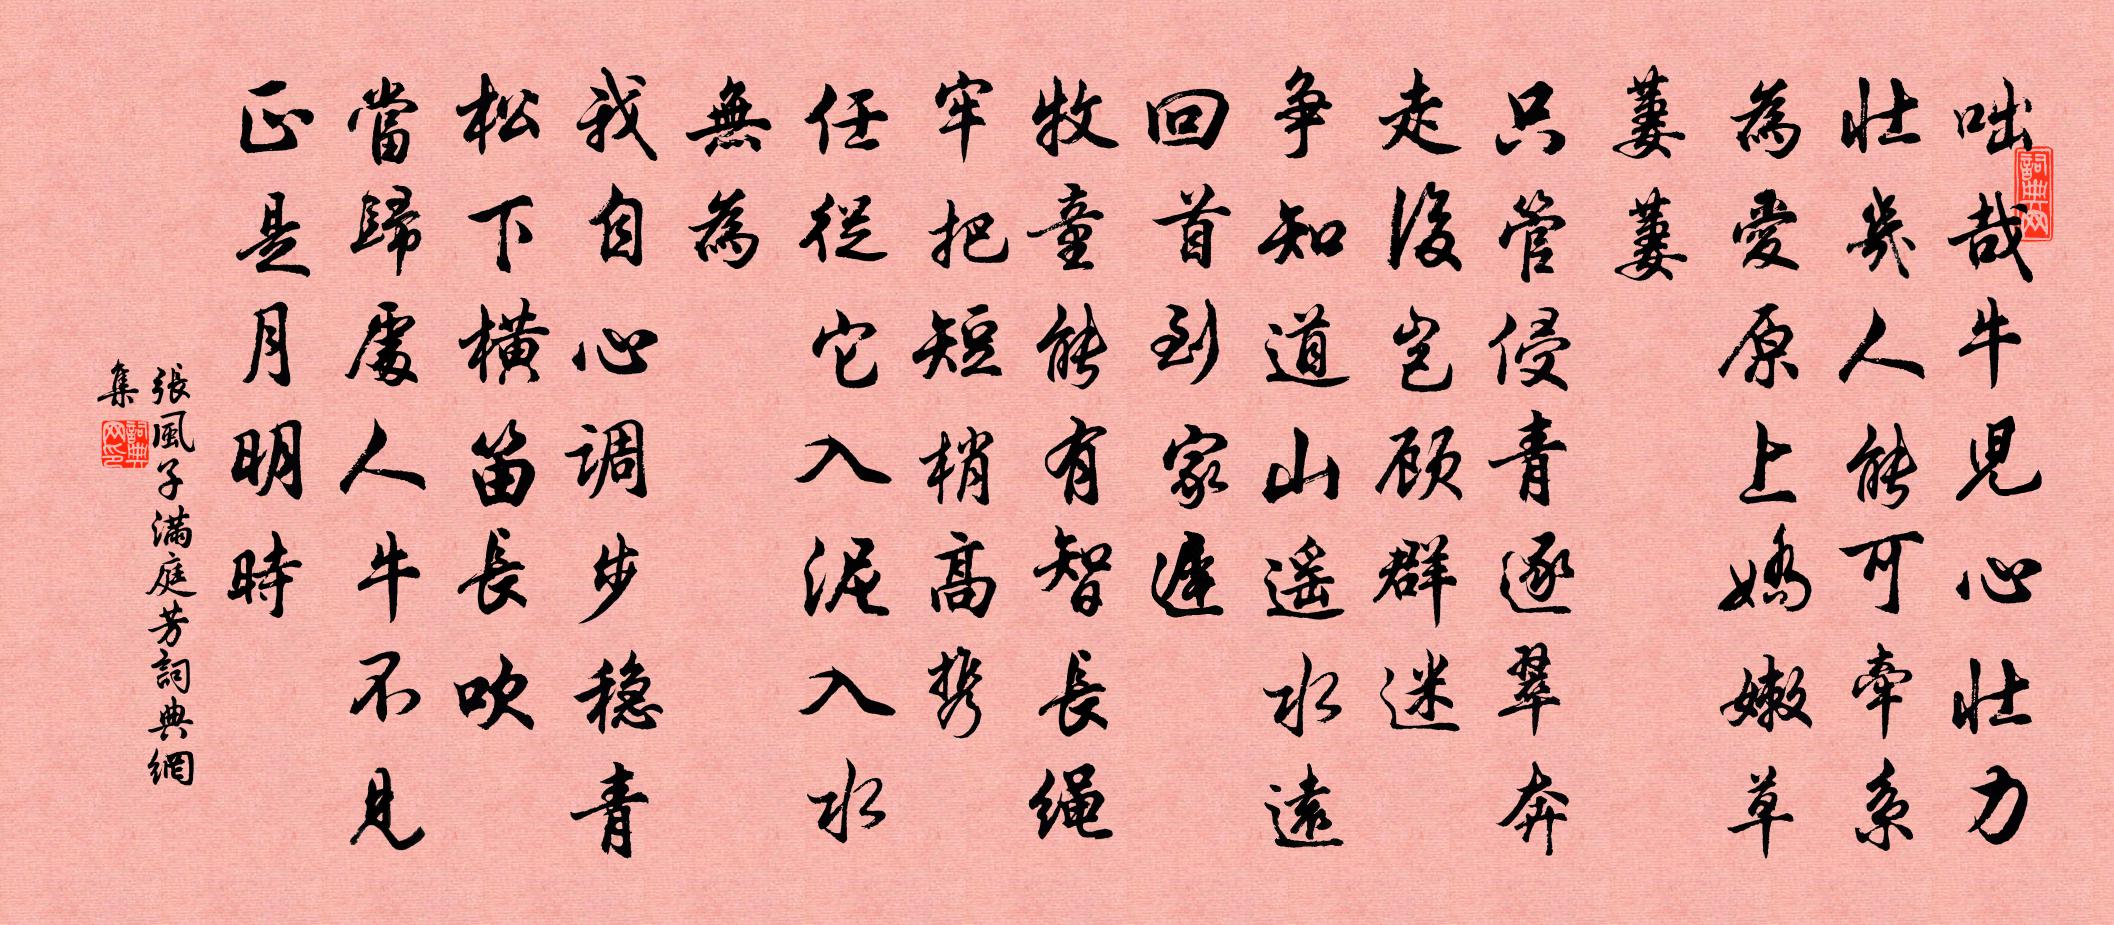 咄哉牛児心壮力
壮幾人能可牽系
為愛原上嬌嫩草
萋萋
只管侵青逐翠奔
走後岂顾群迷
争知道山遥水遠
回首到家遲
牧童能有智長繩
牢把短梢高携
任從它入泥入水
無為
我自心调步穏青
松下横笛長吹
當歸處人牛不見
正是月明時
張風子滿庭芳詞典網
集
詞典网
詞典网印